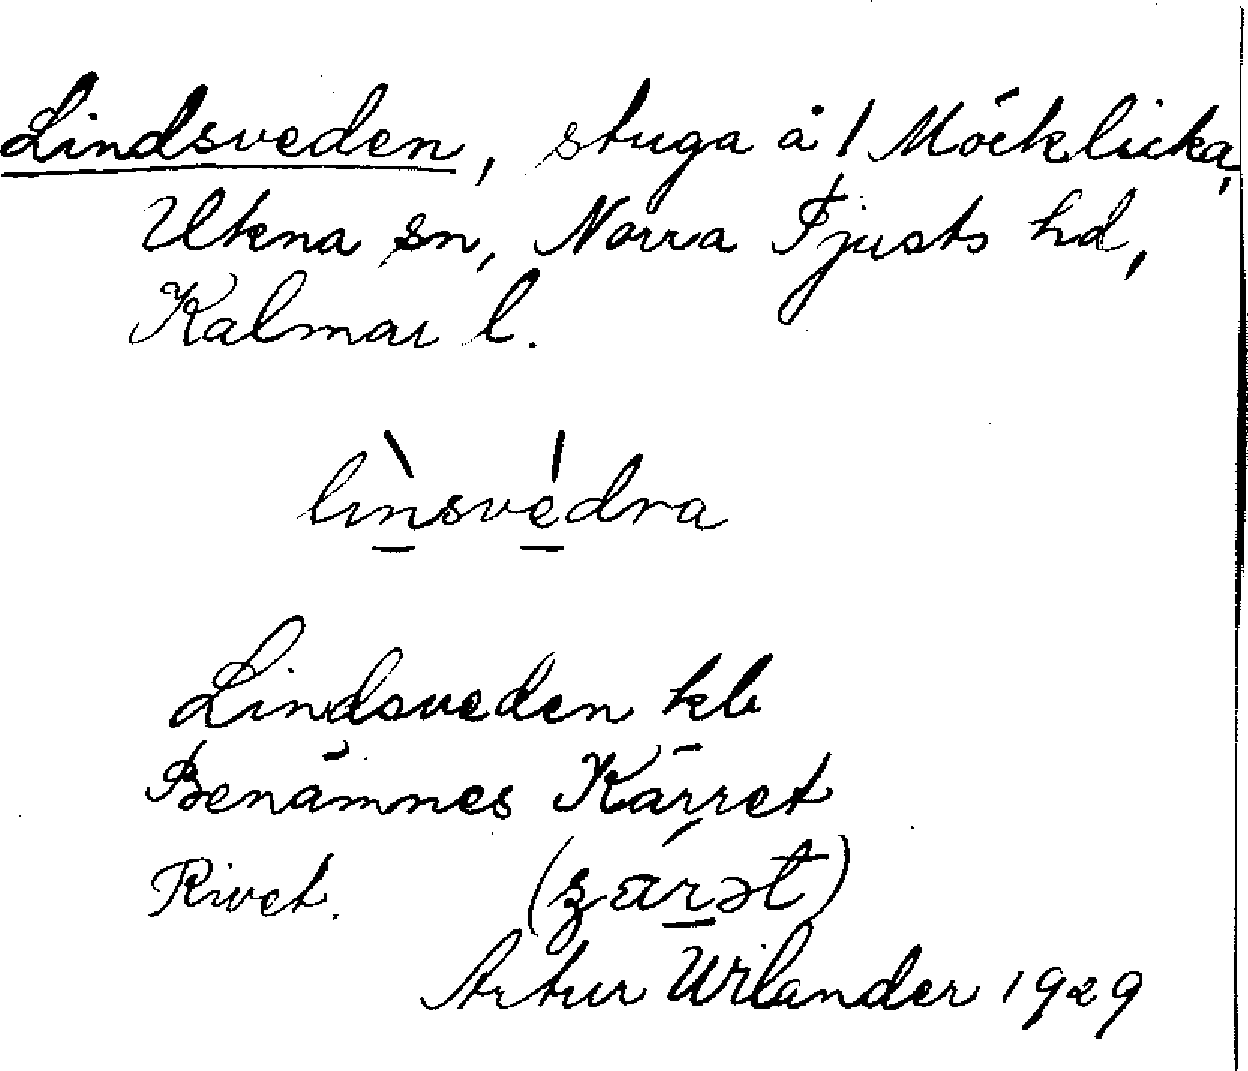 Lindsveden, stuga å 1 Möcklicka,
Ukna sn, Norra Tjusts hd,
Kalmar l.
lìnsvédra
Lindsveden kb
Benämnes Kärret
Rivet. (ʒárət)
Artur Wilander 1929